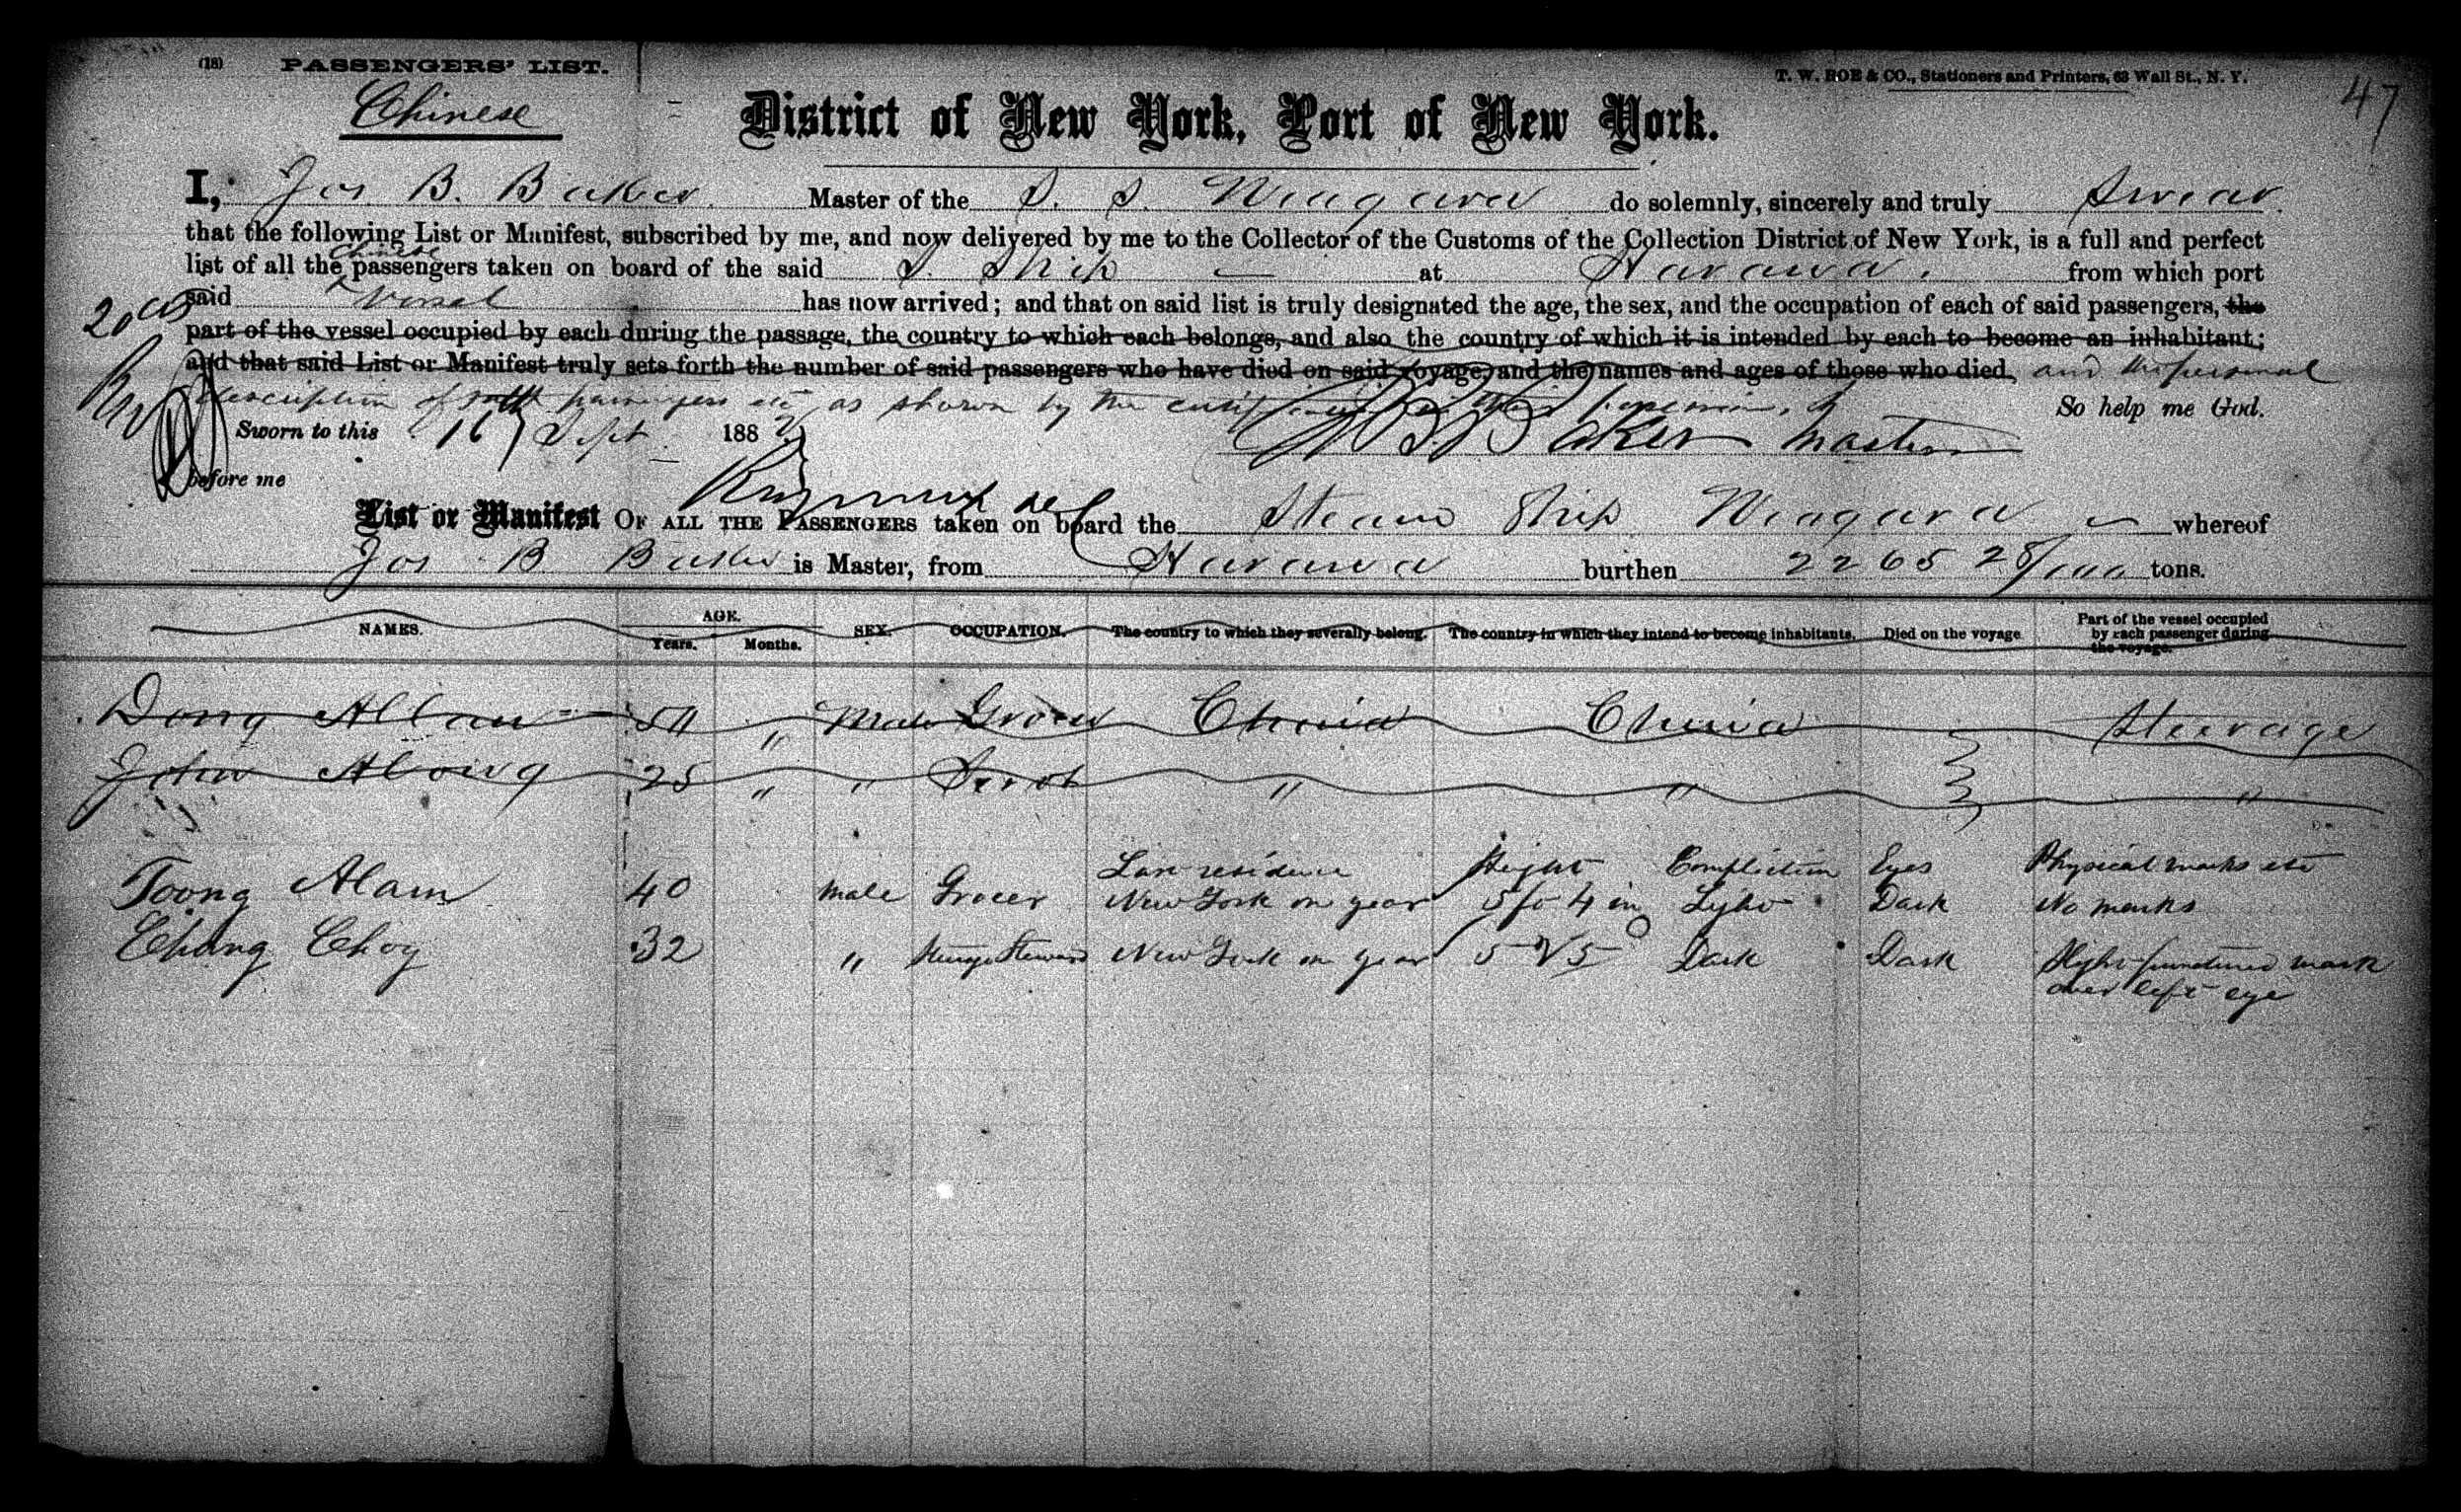 (18) PASSENGERS' LIST.
T. W. ROE & CO., Stationers and Printers, 63 Wall St., N. Y.
47
Chinese
District of New York, Port of New York.
I, Jos. B. Baker. Master of the S. S. Niagara do solemnly, sincerely and truly Swear
that the following List or Manifest, subscribed by me, and now delivered by me to the Collector of the Customs of the Collection District of New York, is a full and perfect
Chinese
list of all the passengers taken on board of the said S. Ship at Havana. from which port
said Vessel has now arrived; and that on said list is truly designated the age, the sex, and the occupation of each of said passengers, the
part of the vessel occupied by each during the passage, the country to which each belongs, and also the country of which it is intended by each to become an inhabitant;
and that said List or Manifest truly sets forth the number of said passengers who have died on said voyage, and the names and ages of those who died, and the personal
description of passengers etc as shown by the So help me God.
Sworn to this 16 Sept 188 JB Baker Master
before me
List or Manifest OF ALL THE PASSENGERS taken on board the Steam Ship Niagara whereof
Jos B Baker is Master, from Havana burthen 2265 28/100 tons.
NAMES. AGE. Years. Months. SEX. OCCUPATION. The country to which they severally belong. The country in which they intend to become inhabitants. Died on the voyage Part of the vessel occupied by each passenger during the voyage.
Dong Allan 51 " Male Grocer China China Steerage
John Along 25 " " " " "
Last residence Height Complection Eyes Physical marks etc
Toong Alam 40 male Grocer New York on year 5 ft 4 in Light Dark No marks
Chang Choy 32 " Steward New York on year 5 5 Dark Dark Slight punctured mark
over left eye